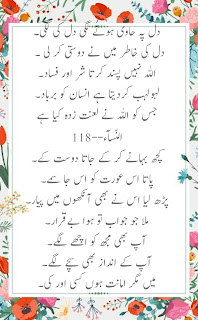 دل پہ حاوی ہونے لگی دل کی لگی۔
دل کی خاطر میں نے دوستی کر لی۔
اللہ نہیں پسند کرتا شر اور فساد۔
لہو لہب کر دیتا ہے انسان کو برباد۔
جس کو اللہ نے لعنت زدہ کیا ہے
النساَ۔--118
کچھ بہانے کر کے جاتا دوست کے۔
پاتا اس عورت کو اس جا سمے۔
پڑھ لیا اس نے بھی آنکھوں میں پیار۔
ملا جو جواب تو ہوا بے قرار۔
آپ بھی مجھ کو اچھے لگے۔
آپ کے انداز بھی سچے لگے۔
میں مگر امانت ہوں کسی اور کی۔